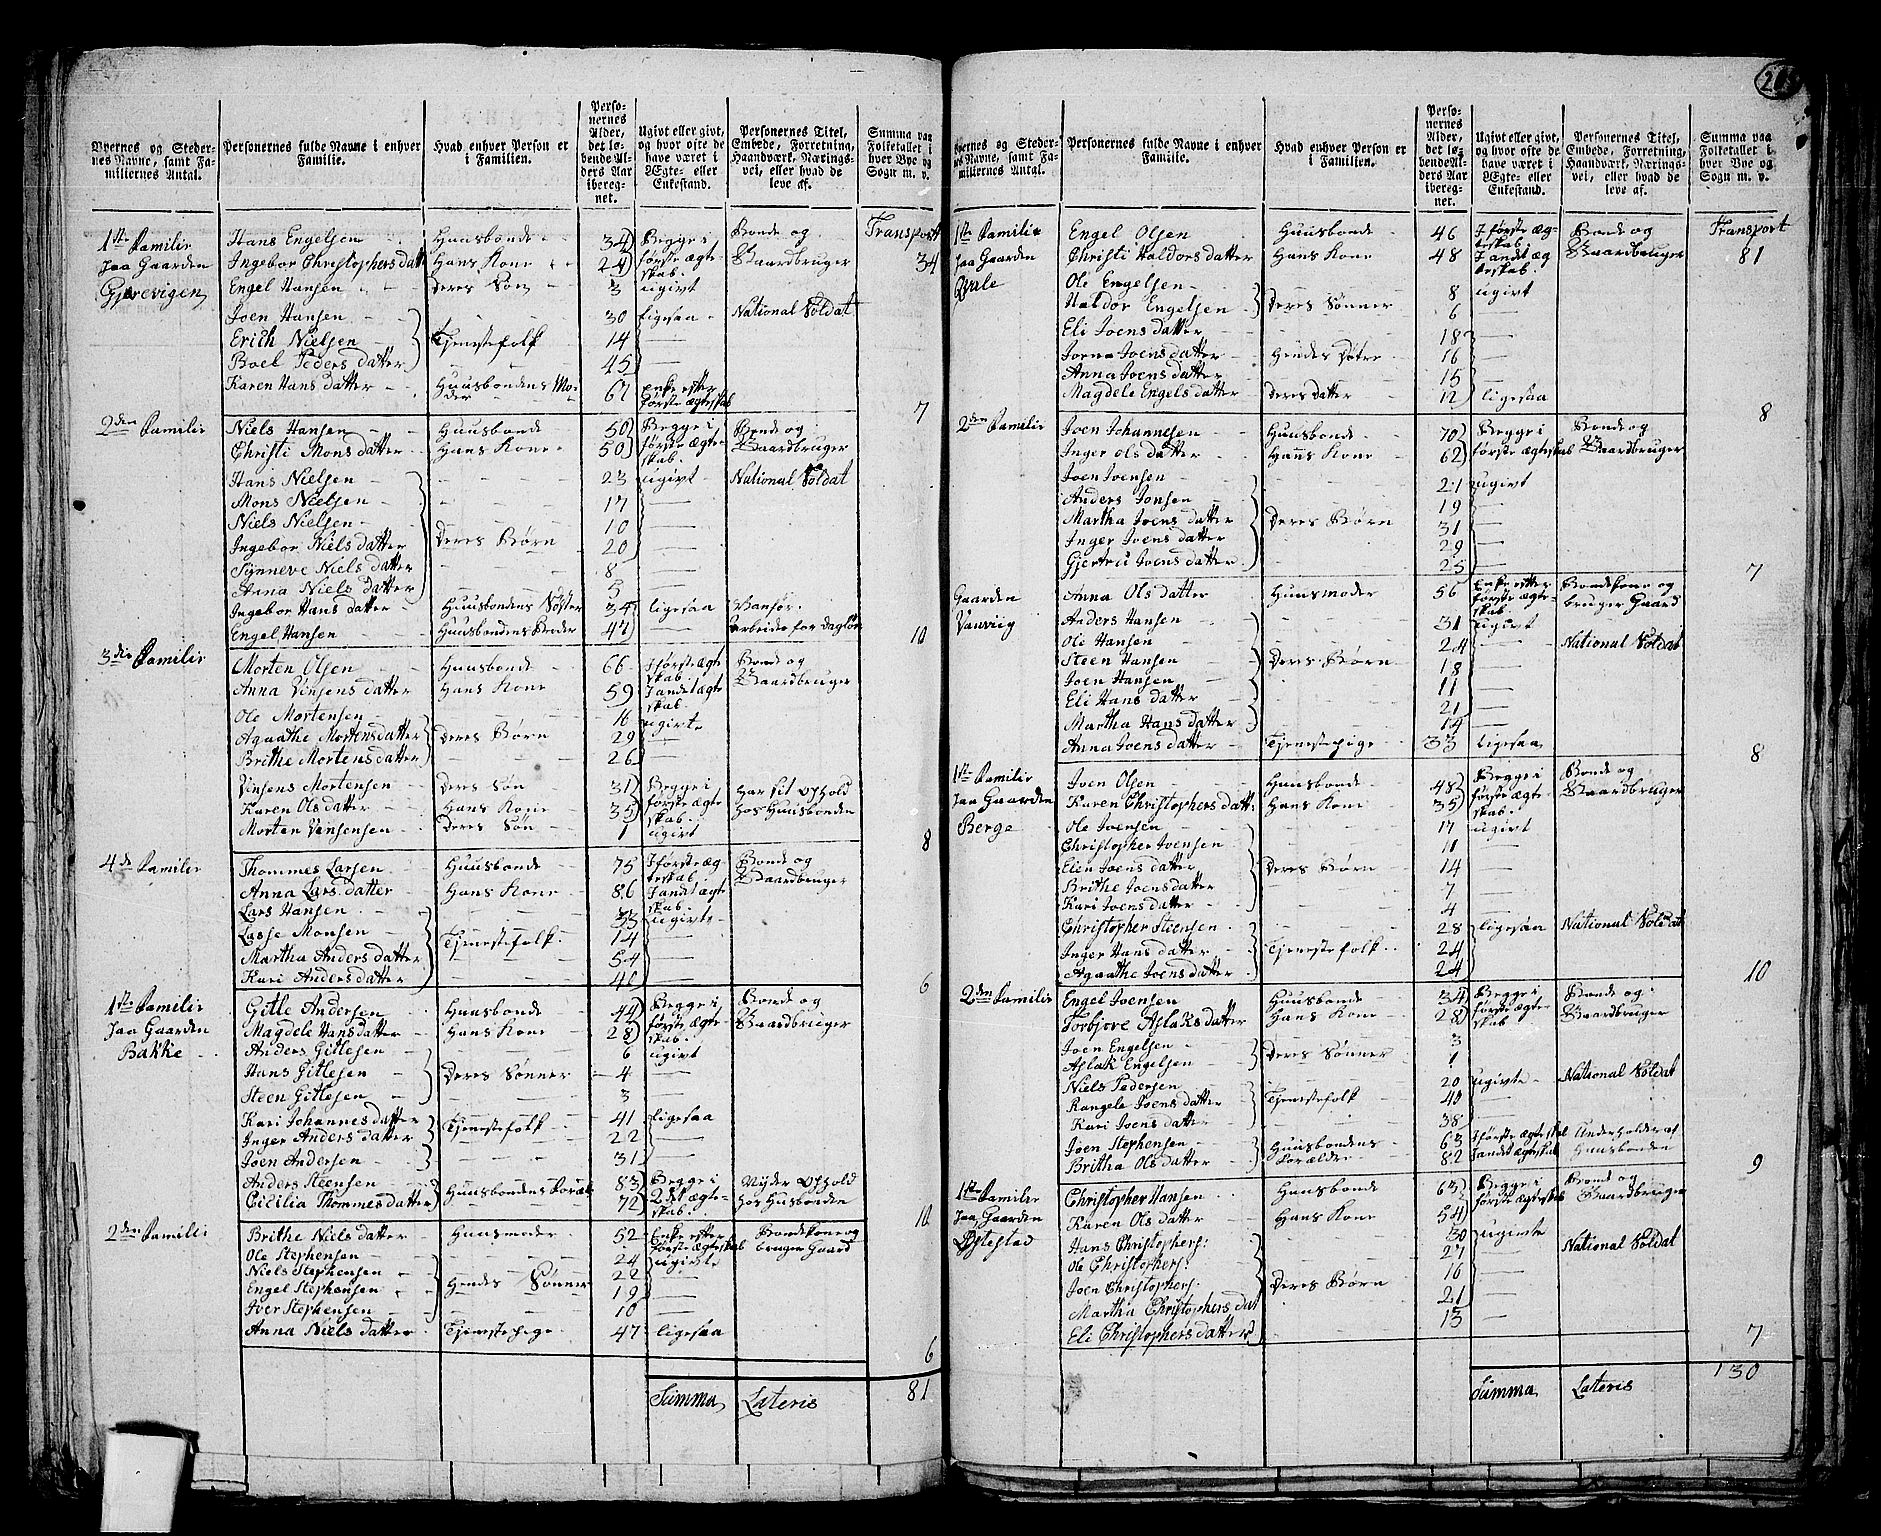 Byernes og Stedernes Navne, samt Familiernes Antal. | Personernes fulde Navne i enhver Familie. | Hvad enhver Person er i Familien. | Personernes Alder, det løbende Alders Aar iberegnet. | Ugivt eller givt, og hvor ofte de have været i Ægte- eller Enkestand. | Personernes Titel, Embede, Forretning, Haandværk, Næringsvei, eller hvad de leve af. | Summa paa Folketallet i hver Bye og Sogn m. v.
Transport 34
1ste Familie paa Gaarden | Hans Engelsen | Huusbonde | 34 | Begge i første ægteskab | Bonde og Gaardbruger
Ingebor Christophersdatt | Hans Kone | 24
Engel Hansen | Deres Søn | 3 | ugivt
Joen Hansen | 30 | ligesaa | National Soldat
Erich Nielsen | Tjenestefolk | 14
Boel Peders datter | 45
Karen Hans datter | Huusbondens Moder | 67 | Enke efter første ægteskab | 7
2den Familie | Niels Hansen | Huusbonde | 50 | Begge i første ægteskab | Bonde og Gaardbruger
Christi Mons datter | Hans Kone | 50
Hans Nielsen | 23 | ugivt | National Soldat
Mons Nielsen | 17
Niels Nielsen | 10
Ingebor Niels datter | Deres Børn | 20
Synneve Niels datter | 8
Anna Niels datter | 5
Ingebor Hans datter | Huusbondens Søster | 34 | ligesaa | Vanfør
Engel Hansen | Huusbondens Broder | 47 | arbeider for dagløn | 10
3die Familie | Morten Olsen | Huusbonde | 66 | I første ægteskab | Bonde og Gaardbruger
Anna Vinsens datter | Hans Kone | 59 | I andet ægteskab
Ole Mortensen | 16 | ugivte
Agaathe Mortensdatter | Deres Børn | 29
Brithe Mortensdatter | 26
Vinsens Mortensen | Deres Søn | 31 | Begge i første ægteskab | Har sit ophold hos Huusbonden
Karen Olsdatter | Hans Kone | 35
Morten Vinsensen | Deres Søn | 1 | ugivt | 8
4de Familie | Thommes Larsen | Huusbonde | 75 | I første ægteskab | Bonde og Gaardbruger
Anna Lars datter | Hans Kone | 86 | I andet ægteskab
Lars Hansen | 33 | ugivte
Lasse Monsen | Tjenestefolk | 14
Martha Anders datter | 54
Kari Anders datter | 46 | 6
1ste Familie paa Gaarden Bakke | Gitle Andersen | Huusbonde | 44 | Begge i første ægteskab | Bonde og Gaardbruger
Magdele Hansdatter | Hans Kone | 28
Anders Gitlesen | 6 | ugivt
Hans Gitlesen | Deres Sønner | 4
Steen Gitlesen | 3
Kari Johannes datter | Tjenestefolk | 41 | ligesaa
Inger Anders datter | 22
Joen Andersen | 31
Anders Steensen | Huusbondens Foræl | 83 | Begge i 2det ægteskab | Nyder ophold hos Husbonden
Cicilia Thommes datter | 72 | 10
2den Familie | Brithe Niels datter | Huusmoder | 52 | Enke efter første ægteskab | Bondekone og bruger Gaard
Ole Stephensen | 24 | ugivte
Niels Stephensen | 22
Engel Stephensen | Hendes Sønner | 19
Iver Stephensen | 10
Anna Niels datter | Tjenestepige | 47 | ligesaa | 6
Summa Lateris 81
Byernes og Stedernes Navne, samt Familiernes Antal. | Personernes fulde Navne i enhver Familie. | Hvad enhver Person er i Familien. | Personernes Alder, det løbende Alders Aar iberegnet. | Ugivt eller givt, og hvor ofte de have været i Ægte- eller Enkestand. | Personernes Titel, Embede, Forretning, Haandværk, Næringsvei, eller hvad de leve af. | Summa paa Folketallet i hver Bye og Sogn m. v.
Transport 81
1ste Familie paa Gaarden Qvale | Engel Olsen | Huusbonde | 46 | I første ægteskab | Bonde og Gaardbruger
Christi Haldors datter | Hans Kone | 48 | I andet ægteskab
Ole Engelsen | 8 | ugivt
Haldor Engelsen | Deres Sønner | 6
Eli Joens datter | 18
Joena Joens datter | Hendes Døtre | 16
Anna Joens datter | 15
Magdele Engels datter | Deres datter | 12 | ligesaa | 8
2den Familie | Joen Johannesen | Huusbonde | 70 | Begge i første ægteskab | Bonde og Gaardbruger
Inger Ols datter | Hans Kone | 62
Joen Joensen | 21 | ugivt
Anders Jonsen | 19
Martha Joens datter | Deres Børn | 31
Inger Joens datter | 29
Gjertru Joens datter | 25 | 7
Gaarden | Anna Ols datter | Huusmoder | 56 | Enke efter første ægteskab | Bondekone og bruger Gaard
Anders Hansen | 31 | ugivt
Ole Hansen | 24 | National Soldat
Steen Hansen | Deres Børn | 18
Joen Hansen | 11
Eli Hans datter | 21
Martha Hans datter | 14
Anna Joens datter | Tjenestepige | 33 | ligesaa | 8
1ste Familie paa Gaarden Berge | Joen Olsen | Huusbonde | 48 | Begge i første ægteskab | Bonde og Gaardbruger
Karen Christophers datt: | Hans Kone | 35
Ole Joensen | 17 | ugivt
Christopher Joensen | 11
Elen Joens datter | Deres Børn | 14
Brithe Joens datter | 7
Kari Joens datter | 4
Christopher Steensen | 28 | ligesaa | National Soldat
Inger Hans datter | Tjenestefolk | 24
Agaathe Joens datter | 24 | 10
2den Familie | Engel Joensen | Huusbonde | 34 | Begge i første ægteskab | Bonde og Gaardbruger
Torbjore Aslaks datter | Hans Kone | 28
Joen Engelsen | 3
Aslak Engelsen | Deres Sønner | 1
Niels Pedersen | 20 | ugivte | National Soldat
Rangele Joens datter | Tjenestefolk | 40
Kari Joens datter | 38
Joen Stephensen | Huusbondens Forældre | 63 | I første ægteskab | Underholdes af Huusbonden
Britha Ols datter | 82 | I andet ægteskab | 9
1ste Familie paa Gaarden | Christopher Hansen | Huusbonde | 63 | Begge i første ægteskab | Bonde og Gaardbruger
Karen Ols datter | Hans Kone | 54
Hans Christophers: | 30 | ugivte
Ole Christophers: | 27 | National Soldat
Joen Christophers: | Deres Børn | 16
Martha Christophers dat | 21
Eli Christophers datter | 13 | 7
Summa Lateris 130